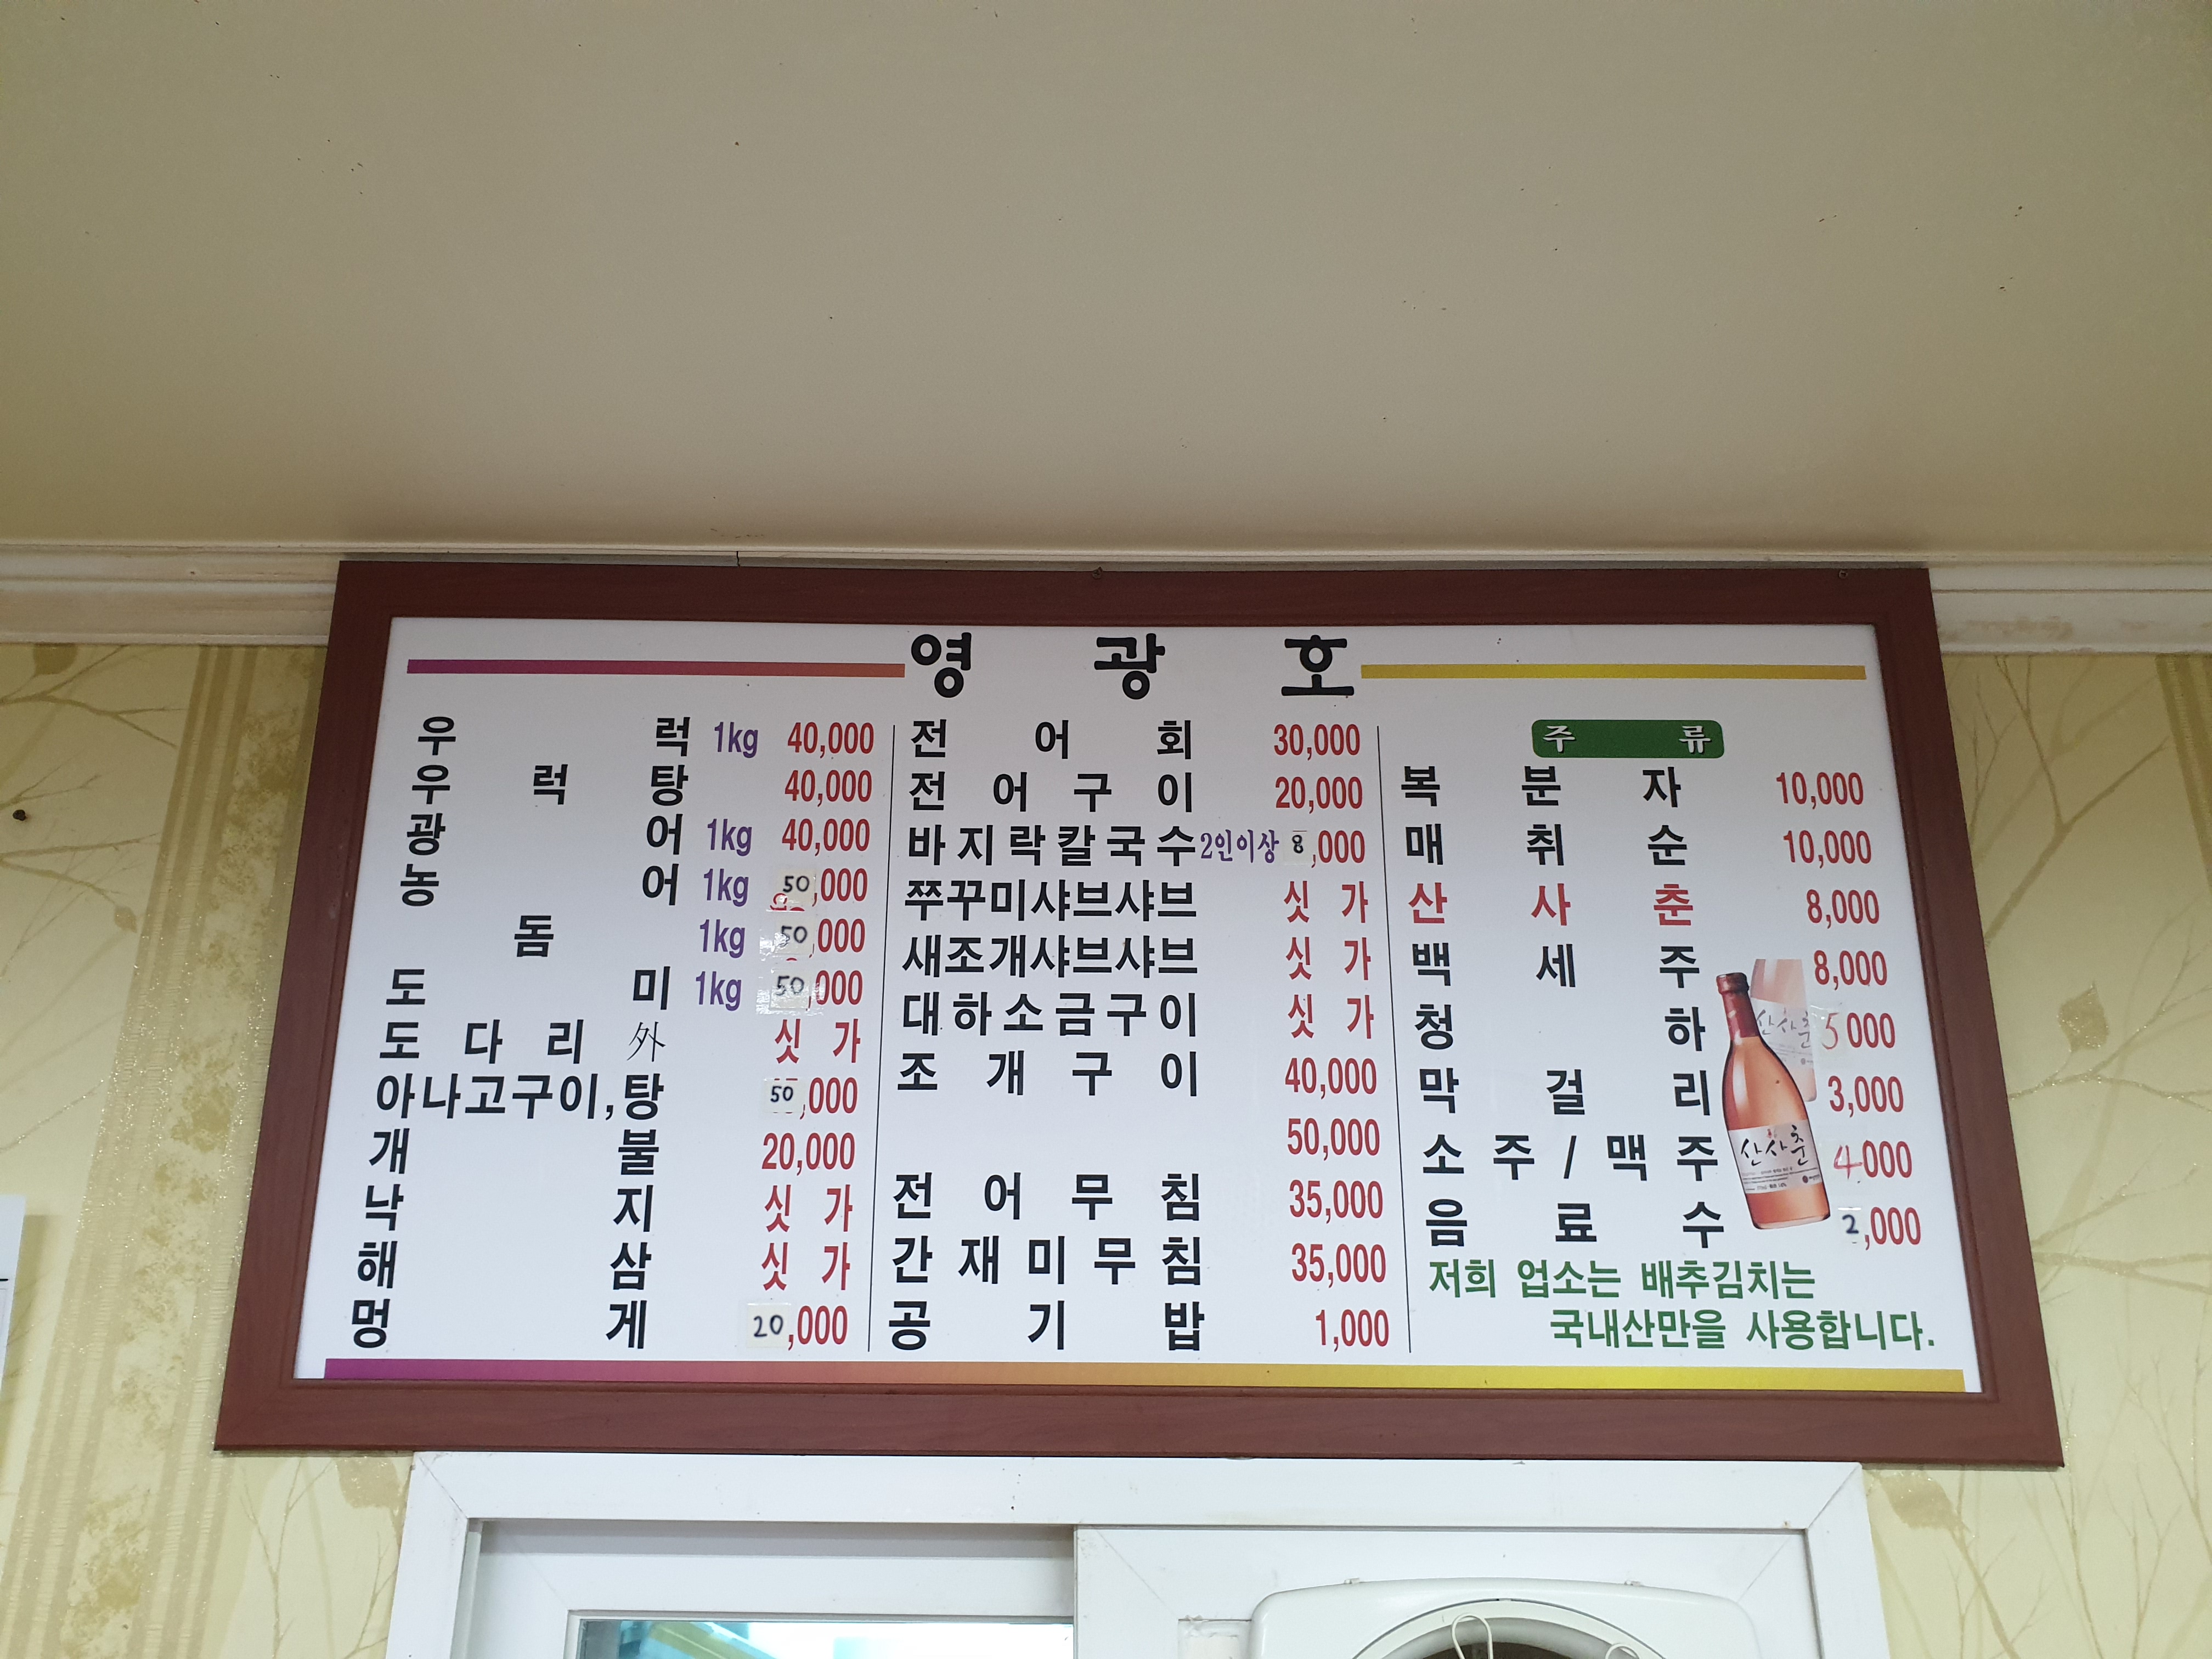 영 광 호
우 럭 1kg 40,000
우 럭 탕 40,000
광 어 1kg 40,000
농 어 1kg 50,000
돔 1kg 50,000
도 미 1kg 50,000
도 다 리 外 싯 가
아나고구이,탕 50,000
개 불 20,000
낙 지 싯 가
해 삼 싯 가
멍 게 20,000
전 어 회 30,000
전 어 구 이 20,000
바지락칼국수 2인이상 8,000
쭈꾸미샤브샤브 싯 가
새조개샤브샤브 싯 가
대하소금구이 싯 가
조 개 구 이 40,000
50,000
전 어 무 침 35,000
간 재 미 무 침 35,000
공 기 밥 1,000
주 류
복 분 자 10,000
매 취 순 10,000
산 사 춘 8,000
백 세 주 8,000
청 하 5000
막 걸 리 3,000
소 주 / 맥 주 4000
음 료 수 2,000
산사춘
산사춘
저희 업소는 배추김치는
국내산만을 사용합니다.